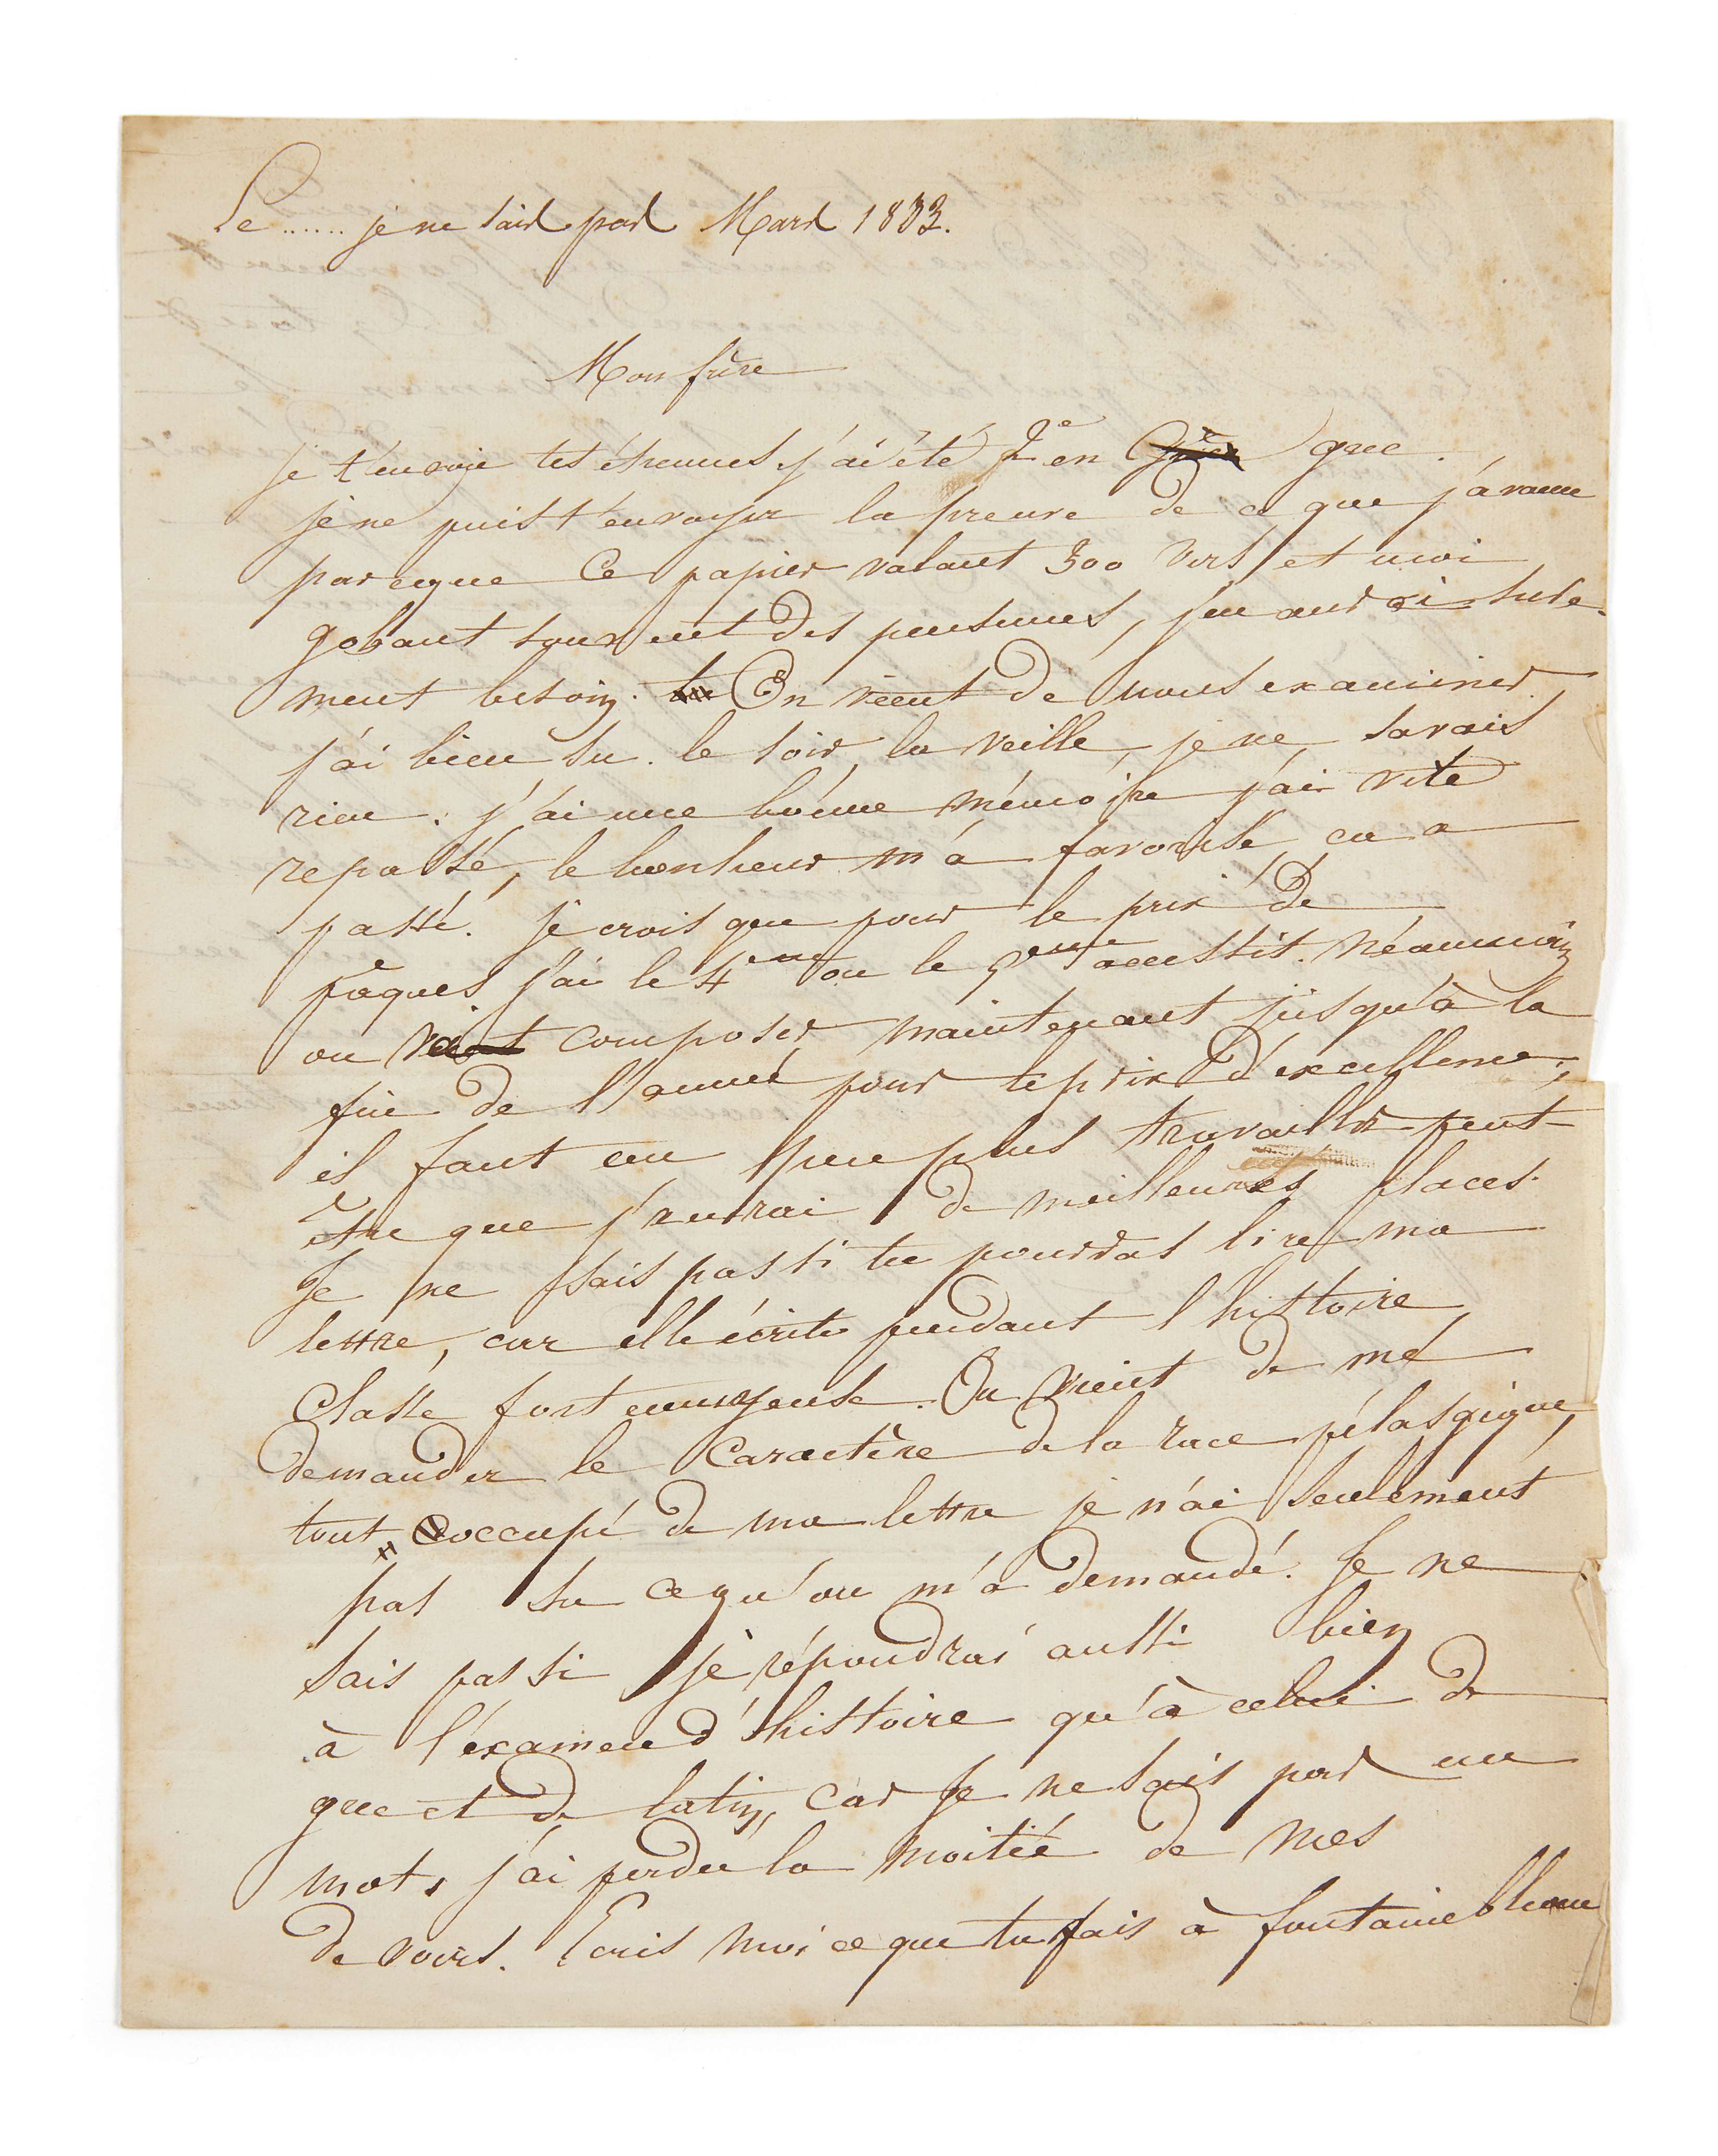 Le ...... je ne sais pas Mars 1833.
Mon frère
Je t'envoie tes étrennes j'ai été 2e en grec.
je ne puis t'envoyer la preuve de ce que j'avance
parceque ce papier valant 300 vers et moi
gobant souvent des pensums, j'en aurai sure-
ment besoin. On vient de nous examiner.
j'ai bien su. le soir, la veille, je ne savais
rien. j'ai une bonne mémoire j'ai vite
repassé, le bonheur m'a favorisé, ca a
passé. Je crois que pour le prix de
pâques j'ai le 4eme ou le 5eme accessit. Néanmoins
on vient composer maintenant jusqu'à la
fin de l'année pour le prix d'excellence;
il faut un peu plus travailler peut-
être que j'aurai de meilleures places.
Je ne sais pas si tu pourras lire ma
lettre, car elle écrite pendant l'histoire,
Classe fort ennuyeuse. On vient de me
demander le Caractère de la race pélasgique,
tout occupé de ma lettre je n'ai seulement
pas su ce qu'on m'a demandé. Je ne
sais pas si je répondrai aussi bien
à l'examen d'histoire qu'à celui de
grec et de latin, car Je ne sais pas un
mot, j'ai perdu la moitié de mes
devoirs. Ecris moi ce que tu fais à fontainebleau